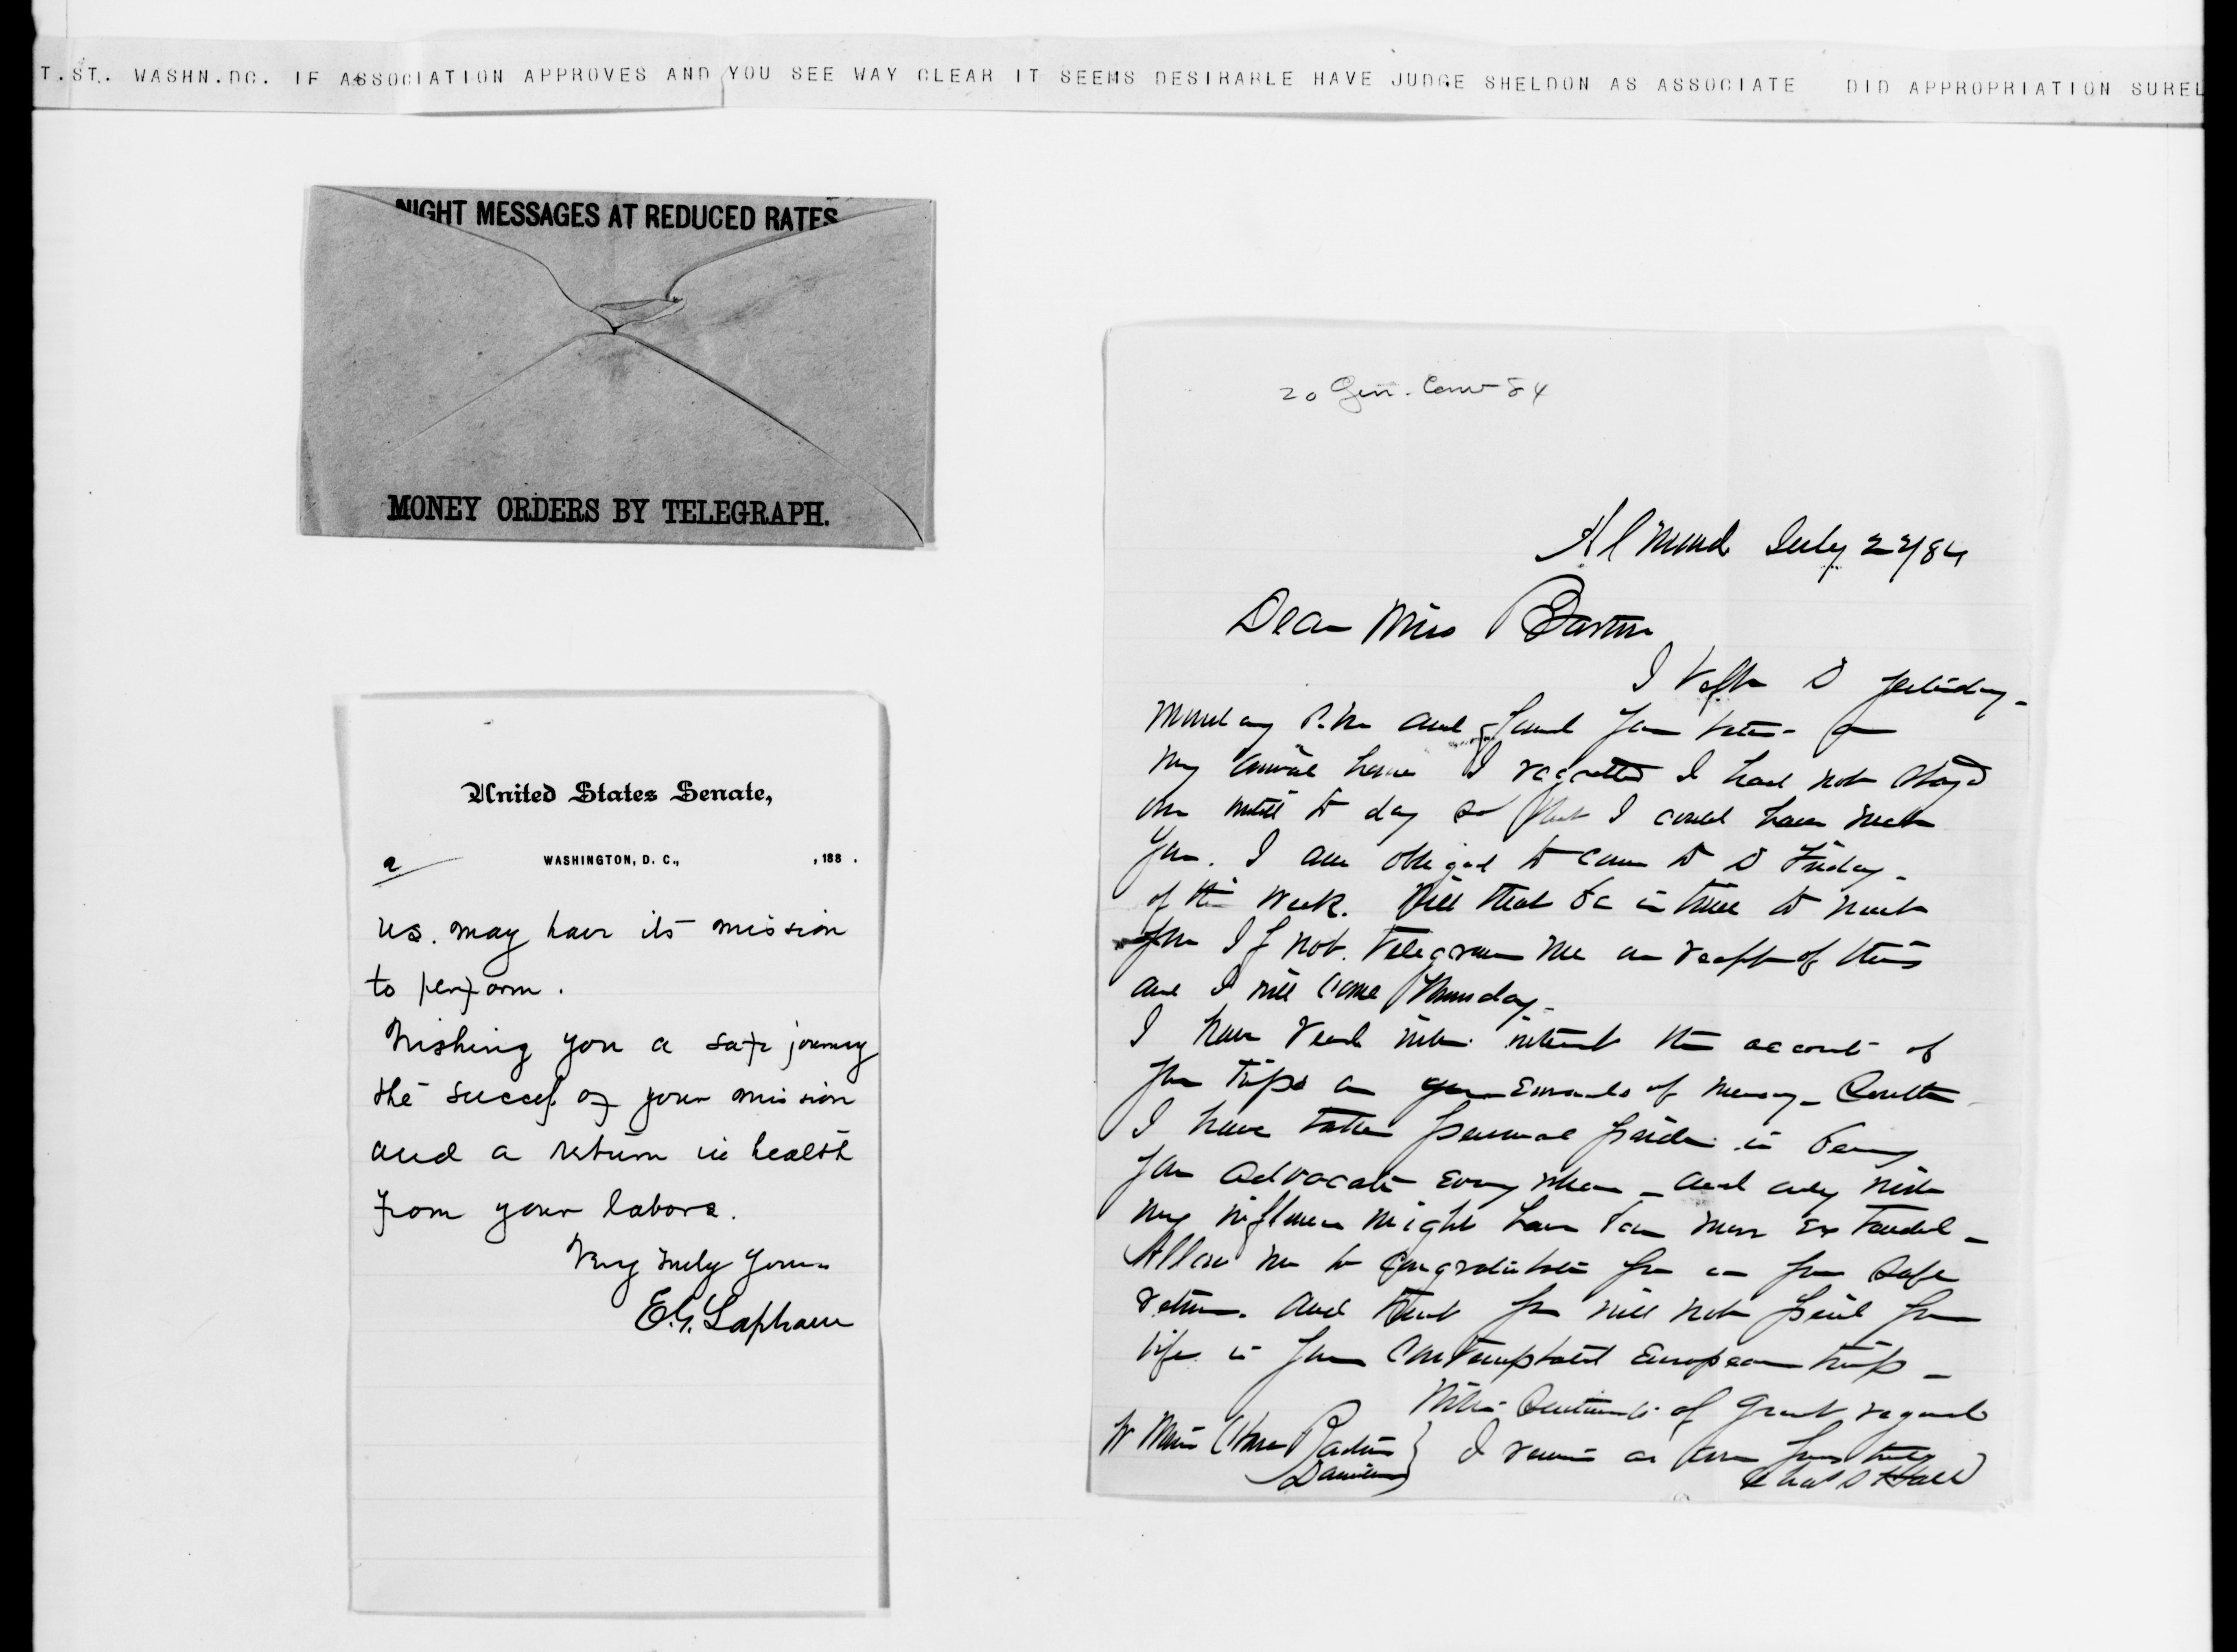 T.ST. WASHN.DC. IF ASSOCIATION APPROVES AND YOU SEE WAY CLEAR IT SEEMS DESIRABLE HAVE JUDGE SHELDON AS ASSOCIATE DID APPROPRIATION SUREL
NIGHT MESSAGES AT REDUCED RATES
MONEY ORDERS BY TELEGRAPH.
United States Senate,
WASHINGTON, D. C., , 188 .
2
us. may have its mission
to perform.
Wishing you a safe journey
the success of your mission
and a return in health
from your labors.
Very truly yours
E.G. Lapham
20 Gen. Conv 84
Almond July 22/84
Dear Miss Barton
I left D yesterday-
Monday P.M. and found your letter on
my arrival home I regretted I had not stayd
on until to day so that I could have seen
you. I am obliged to come to D Friday-
of this week. Will that be in time to meet
you If not. Telegram me on receipt of this
and I will come Thursday-
I have read with interest the account of
your trips on your Errands of mercy-
I have taken personal pride in being
your advocate every where - and only wish
my influence might have been more Extended-
Allow me to congratulate you on your safe
return. and trust you will not peril your
life in your contemplated European trip -
With Sentiments of Great regard
To Miss Clara Barton } I remain as ever yours truly
Dansville
Chas S Hall